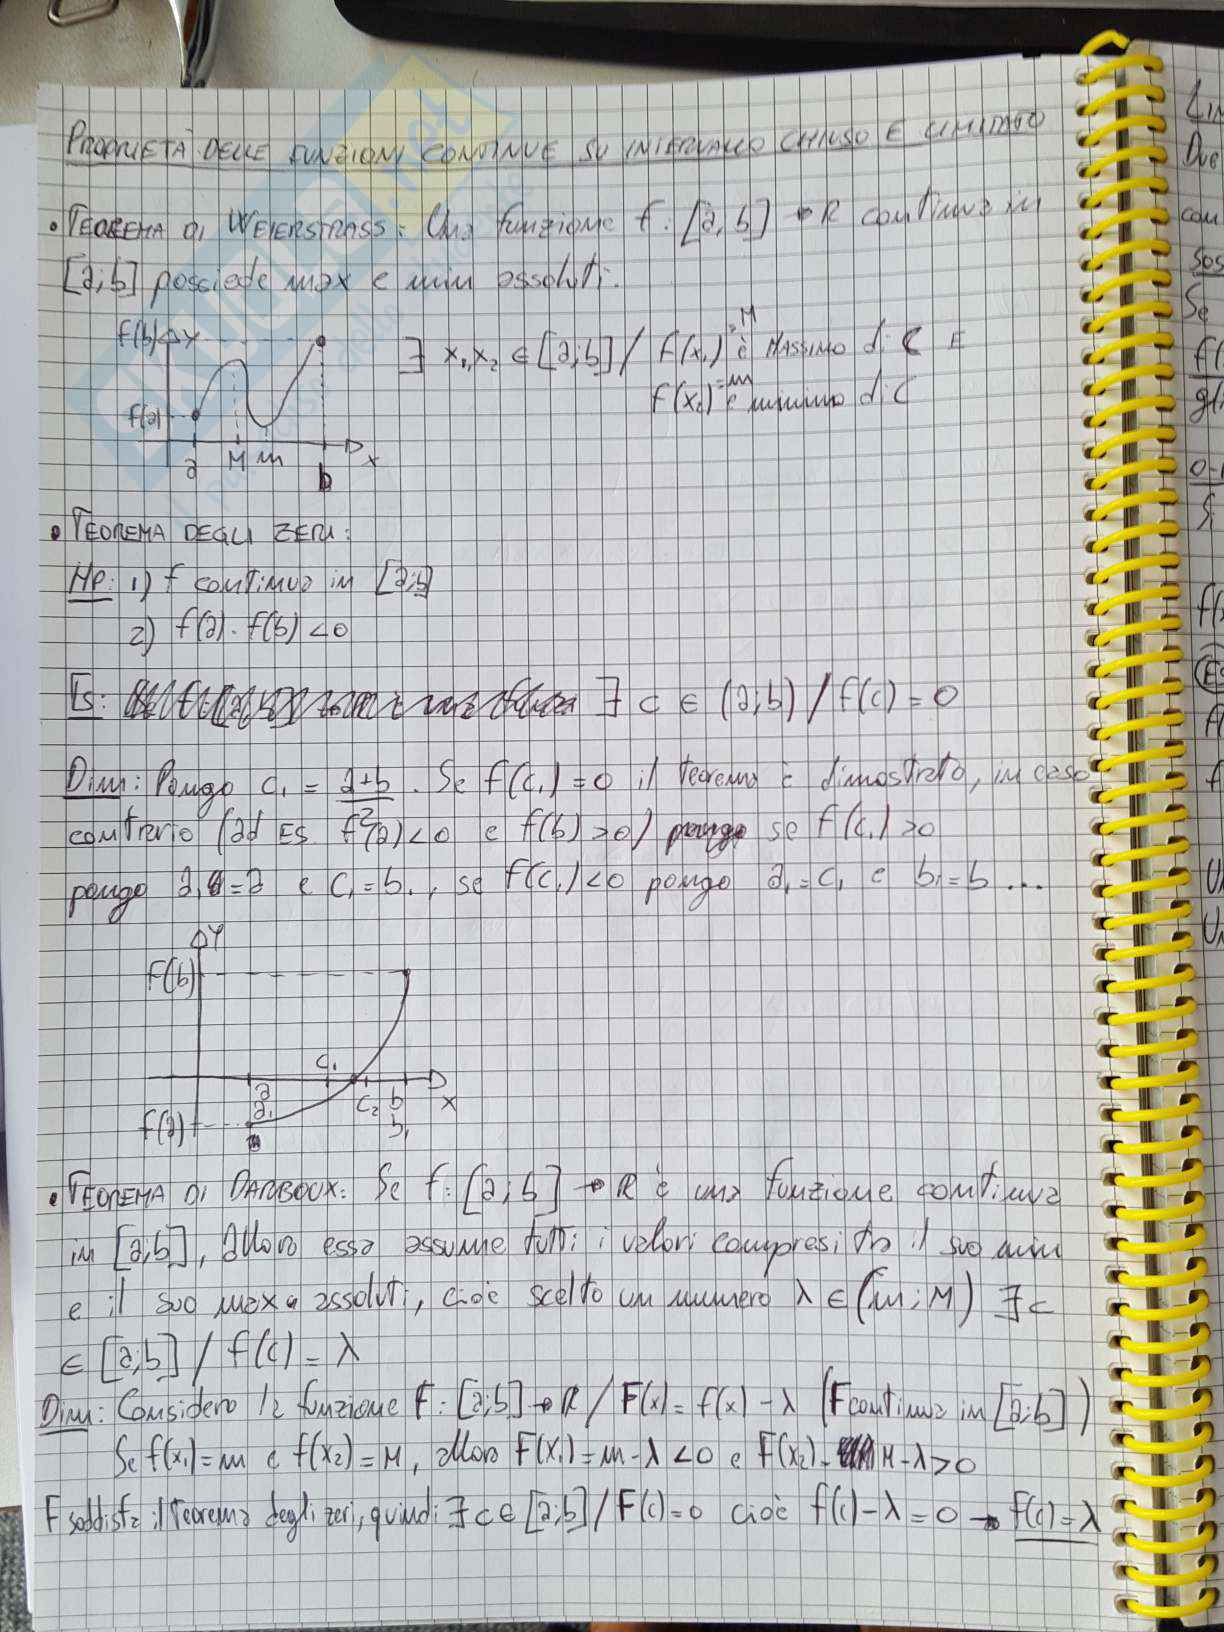 PROPRIETÀ DELLE FUNZIONI CONTINUE SU INTERVALLO CHIUSO E LIMITATO
• TEOREMA DI WEIERSTRASS: Una funzione f: [a; b] → R continua in
[a; b] possiede max e min assoluti.
f(b) Y
∃ x₁, x₂ ∈ [a; b] / f(x₁) =M è MASSIMO di C E
f(x₂) =m è minimo di C
f(a)
a M m b X
• TEOREMA DEGLI ZERI:
HP: 1) f continua in [a; b]
2) f(a) · f(b) < 0
Ts: ∃ c ∈ (a; b) / f(c) = 0
Dim: Pongo c₁ = a+b/2. Se f(c₁) = 0 il teorema è dimostrato, in caso
contrario (ad ES f(a) < 0 e f(b) > 0) se f(c₁) > 0
pongo a₁ = a e c₁ = b₁, se f(c₁) < 0 pongo a₁ = c₁ e b₁ = b ...
Y
f(b)
c₁
a c₂ b X
a₁ b₁
f(a)
• TEOREMA DI DARBOUX: Se f: [a; b] → R è una funzione continua
in [a; b], allora essa assume tutti i valori compresi tra il suo min
e il suo max assoluti, cioè scelto un numero λ ∈ (m; M) ∃ c
∈ [a; b] / f(c) = λ
Dim: Considero la funzione F: [a; b] → R / F(x) = f(x) − λ (F continua in [a; b])
Se f(x₁) = m e f(x₂) = M, allora F(x₁) = m − λ < 0 e F(x₂) = M − λ > 0
F soddisfa il teorema degli zeri, quindi ∃ c ∈ [a; b] / F(c) = 0 cioè f(c) − λ = 0 → f(c) = λ